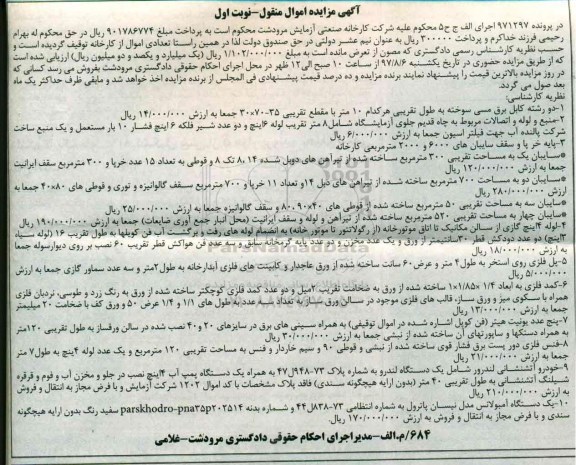 آگهی مزایده اموال منقول-نوبت اول
در پرونده ۹۷۱۲۹۷ اجرای الف ج ح۵ محکوم علیه شرکت کارخانه صنعتی آزمایش مرودشت محکوم است به پرداخت مبلغ ۹۰۱۷۸۶۷۷۴ ریال در حق محکوم له بهرام
رحیمی فرزند خداکرم و پرداخت ۳۰۰۰۰۰۰ ریال به عنوان نیم عشر دولتی در حق صندوق دولت لذا در همین راستا تعدادی اموال از کارخانه توقیف گردیده است و
حسب نظریه کارشناس رسمی دادگستری که مصون از تعرض مانده است به مبلغ ۱/۱۰۲/۰۰۰/۰۰۰ ریال (یک میلیارد و یکصد و دو میلیون ریال) ارزیابی شده است
که از طریق مزایده حضوری در تاریخ یکشنبه ۹۷/۸/۶ از ساعت ۱۰ صبح الی ۱۲ ظهر در محل اجرای احکام حقوقی دادگستری مرودشت بفروش می رسد کسانی که
در روز مزایده بالاترین قیمت را پیشنهاد نمایند برنده مزایده و ده درصد قیمت پیشنهادی فی المجلس از برنده مزایده اخذ خواهد شد و مابقی ظرف حداکثر یک ماه
بعد وصول می گردد.
نظریه کارشناسی:
۱-دو رشته کابل برق مسی سوخته به طول تقریبی هرکدام ۱۰ متر با مقطع تقریبی ۳۵-۷۰×۳۰ جمعا به ارزش ۱۴/۰۰۰/۰۰۰ ریال
۲-منبع و لوله و اتصالات مربوط به چاه قدیم جلوی آزمایشگاه شامل ۸ متر تقریب لوله ۶ اینچ و دو عدد شیر فلکه ۶ اینچ فشار ۱۰ بار مستعمل و یک منبع ساخت
شرکت پالنده آب جهت فیلتر اسیون جمعا به ارزش ۶/۰۰۰/۰۰۰ ریال
۳-پایه خر پا و سقف سایبان های ۶۰۰۰ و ۲۰۰۰ مترمربعی کارخانه
*سایبان یک به مساحت تقریبی ۳۰۰ مترمربع ساخته شده از تیرآهن های دوبل شده ۱۴، ۸ تک ۸ و قوطی به تعداد ۱۵ عدد خرپا و ۳۰۰ مترمربع سقف ایرانیت
جمعا به ارزش ۱۲۰/۰۰۰/۰۰۰ ریال
*سایبان دو به مساحت ۷۰۰ مترمربع ساخته شده از تیرآهن های دبل ۱۴ و تعداد ۱۱ خرپا و ۷۰۰ مترمربع سقف گالوانیزه و توری و قوطی های ۸۰×۴۰ جمعا به
ارزش ۲۸۰/۰۰۰/۰۰۰ ریال
*سایبان سه به مساحت تقریبی ۵۰ مترمربع ساخته شده از قوطی های ۴۰×۸۰، ۹۰ و سقف گالوانیزه جمعا به ارزش ۲۵/۰۰۰/۰۰۰ ریال
*سایبان چهار به مساحت تقریبی ۵۲۰ مترمربع ساخته شده از تیرآهن و لوله و سقف ایرانیت (محل انبار جمع آوری ضایعات) جمعا به ارزش ۱۹۰/۰۰۰/۰۰۰ ریال
۴-لوله ۴ اینچ گازی از سالن مکانیک تا اتاق موتورخانه (از رگولاتور تا موتور خانه) به انضمام لوله های رفت و برگشت آب فن کویلها به طول تقریب ۱۶ (لوله سیاه
۳ اینچ) دو عدد دودکش قطر ۳۰ سانتیمتر از ورق و یک عدد مخزن و دو عدد پایه گرمخانه سابق و سه عدد فن هواکش قطر تقریبی ۶۰ نصب بر روی دیوارسوله جمعا
به ارزش ۱۸/۰۰۰/۰۰۰ ریال
۵-پل فلزی روی استخر به طول ۴ متر و عرض ۶۰ سانت ساخته شده از ورق عاجدار و کابینت های فلزی آبدارخانه به طول ۲ متر و سه عدد سماور گازی جمعا به ارزش
۵/۰۰۰/۰۰۰ ریال
۶-کمد فلزی به ابعاد ۱/۴×۱/۸۵×۱ ساخته شده از ورق به ضخامت تقریب ۲ میل و دو عدد کمد فلزی کوچکتر ساخته شده از ورق به رنگ زرد و طوسی، نردبان فلزی
همراه با سکوی میز و ورق ساز، قالب های فلزی موجود در سالن ورق ساز به تعداد سه عدد به طول های ۱/۱ و ۱/۴ عرض ۵۰ و ورق کف با ضخامت ۲۰ میلیمتر
جمعا به ارزش ۱۳/۰۰۰/۰۰۰ ریال
۷-پنج عدد یونیت هیتر (فن کویل اشاره شده در اموال توقیفی) به همراه سینی های برق در سایزهای ۲۰ و ۴۰ نصب شده در سالن ورقساز به طول تقریبی ۱۲۰ متر
به همراه دستکها و ساپورتهای آن ساخته شده از نبشی جمعا به ارزش ۳۰/۰۰۰/۰۰۰ ریال
۸-فنس فلزی دور پست برق فشار قوی ساخته شده از نبشی و قوطی ۹۰ و سیم خاردار و فنس به مساحت تقریبی ۱۲۰ مترمربع و یک عدد لوله ۴ اینچ به طول ۷ متر
جمعا به ارزش ۲۱/۰۰۰/۰۰۰ ریال
۹-خودرو آتشنشانی لندرور شامل یک دستگاه لندرو به شماره پلاک ۷۳-۹۴۸ل۴۷ به همراه یک دستگاه پمپ آب ۴ اینچ نصب در جلو و مخزن آب و فوم و قرقره
شیلنگ آتشنشانی به طول تقریبی ۴۰ متر (بدون ارایه هیچگونه سندی) فاقد پلاک مشخصات با کد اموال ۱۲۰۲ شرکت آزمایش و با فرض مجاز به انتقال و فروش
به ارزش ۲۱۰/۰۰۰/۰۰۰ ریال
۱۰-یک دستگاه آمبولانس مدل نیسان پاترول به شماره انتظامی ۷۳-۸۳۸ل۴۴ و شماره بدنه parskhodro-pna۳۵p۲۰۲۵۱۴ سفید رنگ بدون ارایه هیچگونه
سندی و با فرض مجاز به انتقال و فروش به ارزش ۱۷۰/۰۰۰/۰۰۰ ریال.
۶۸۴/م.الف-مدیر اجرای احکام حقوقی دادگستری مرودشت-غلامی